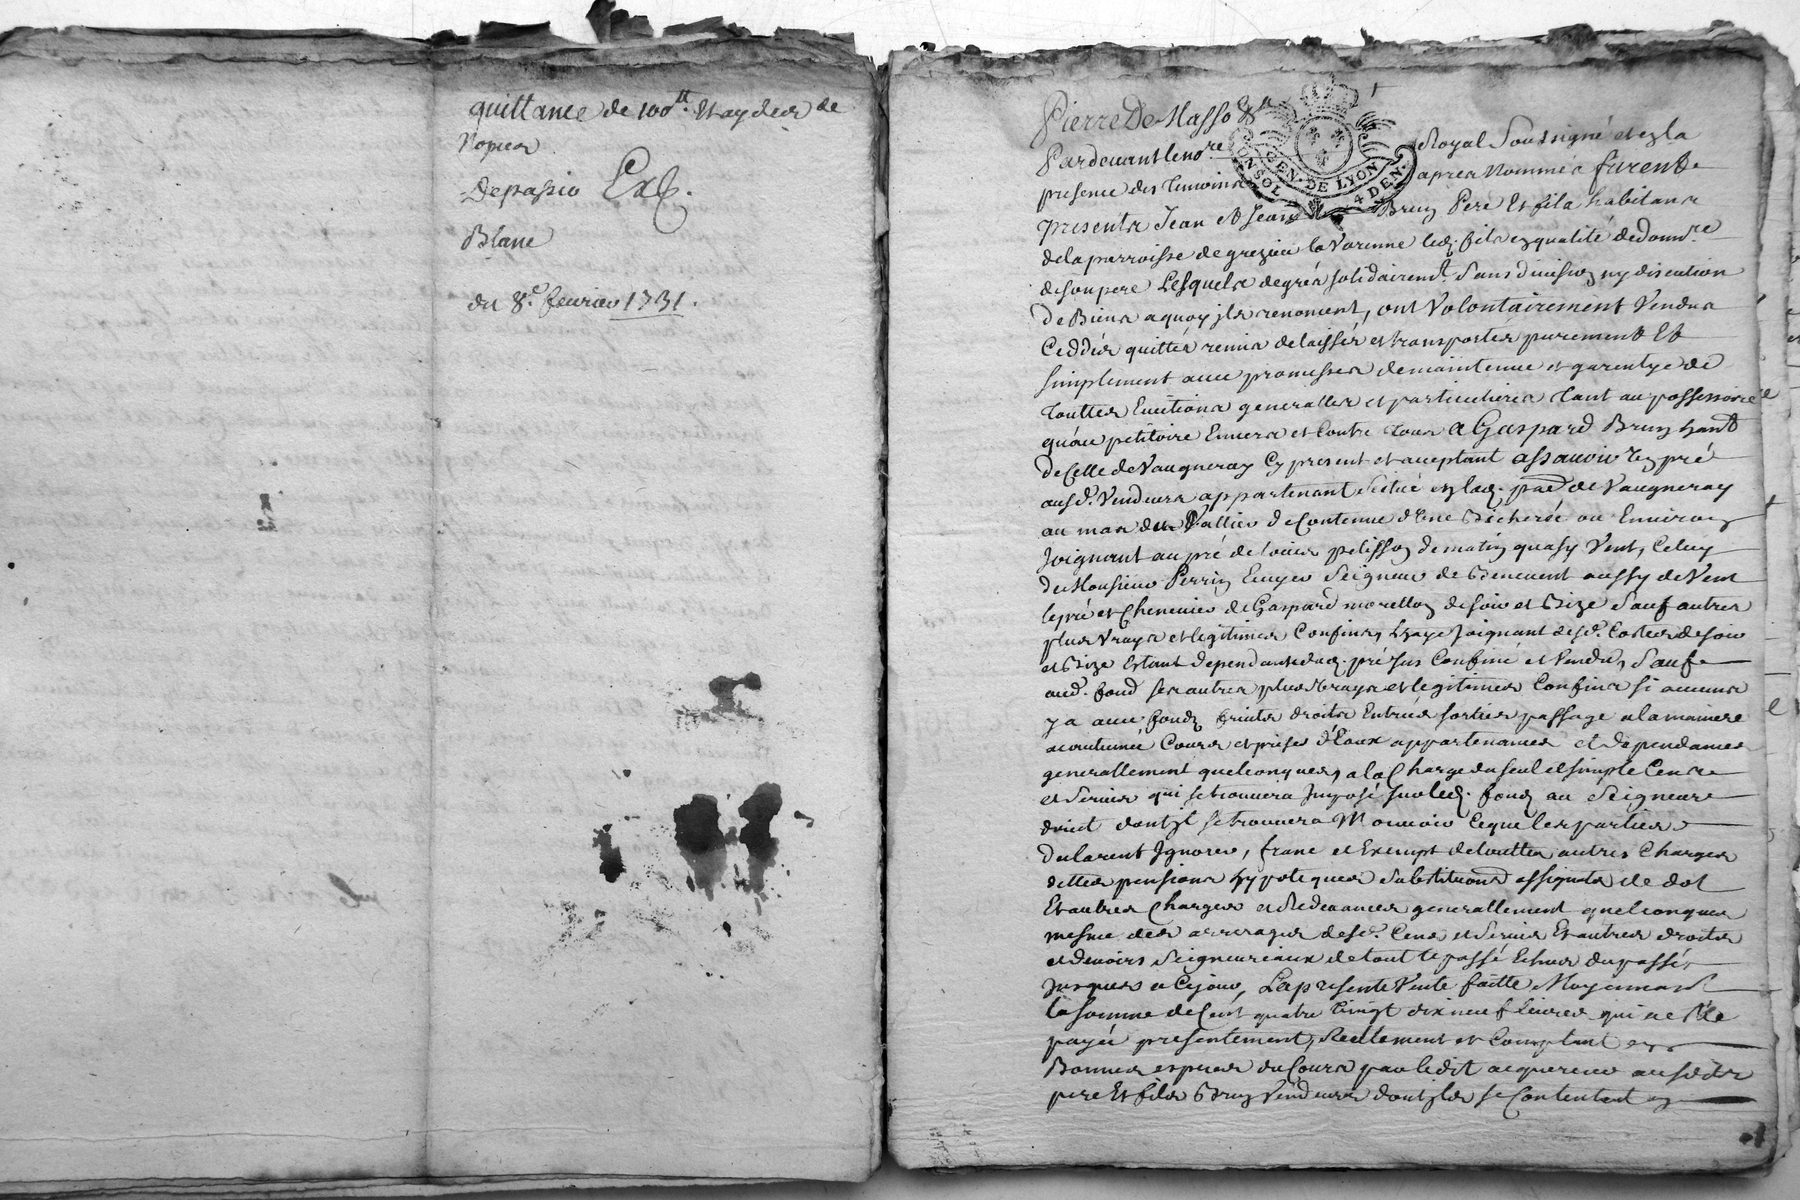 quittance de 100ᵗᵗ. 
Depassio Exp.
Blanc
du 8ᵉ. feurier 1731.
Pierre De Masso
GEN. DE LYON
4 DEN.
Pardeuant le noʳᵉ Royal Soussigné et en la
presence des Temoins apres Nommés furent
presents Jean et Jean Brun Pere et fils habitans
de la parroisse de grezieu la Varenne led. fils en qualité de donnʳᵉ
de son pere Lesquels de gré solidairemᵗ. Sans diuision ny discution
de Biens a quoy jls renoncent, ont Volontairement Vendus
Ceddés quittés remis delaissés et transportés purement et
simplement auec promesses de maintenue et garentye de
touttes Euictions generalles et particulieres tant au possessoire
qu'au petitoire Enuers et Contre tous a Gaspard Brun habᵗ
de Celle de Vaugneray Cy present et acceptant assauoir un pré
ausd. Vendeurs appartenant scitué en lad. paᵉ de Vaugneray
au mas du Vallier de Contenue d'une Bicherée ou Enuiron
Joignant au pré de pelisson de matin quasy Vent, Celuy
de Monsieur Perrin Ecuyer Seigneur de Beneuent aussy de Vent
le pré et Cheneuier de Gaspard morellon de soir et Bize Sauf autres
plus Vrays et legitimes Confins, haye Joignant desd. Costes de soir
et Bize Estant dependante dud. pré sus Confiné et Vendu, Sauf
aud. fond ses autres plus Vrays et legitimes Confins si aucuns
y a auec fondz fruits droits Entrées sorties passage a la maniere
acoutumée Cours et prises d'Eaux appartenances et dependances
generallement quelconques, a la Charge du seul et simple Cens
et Seruis qui se trouuera Imposé sur led. fond au Seigneur
direct dont jl se trouuera Mouuoir Ceque les parties
declarent Ignorer, franc et Exempt de touttes autres Charges
dettes pensions hypoteques substitutions assignats de dot
Et autres Charges et Redeuances generallement quelconques
mesme des arrerages desd. Cens et Seruis Et autres droits
et deuoirs Seigneuriaux de tout le passé
Jusques a Cejour, La presente Vente faitte Moyennant
la somme de Cent quatre Vingt dix neuf Liures qui a esté
payée presentement, Reellement et Comptant en
Bonnes especes du Cours par ledit acquereur ausdits
pere Et fils Brun Vendeurs dont jls se Contentent en